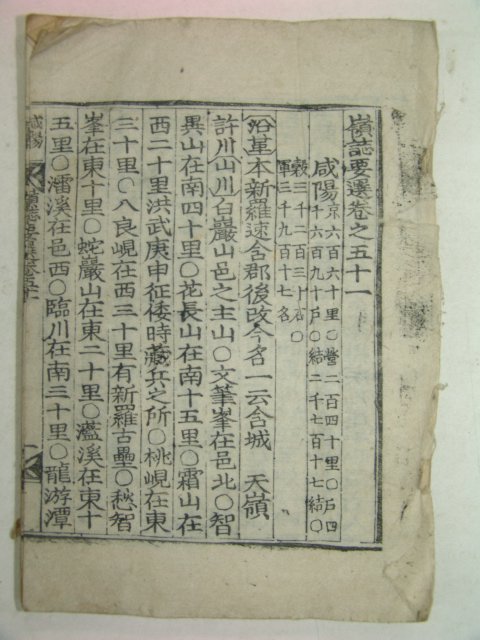 嶺誌要選卷之五十一
咸陽京六百六十里○營二百四十里○戶四
千六百九十戶○結二千七百十七結○
穀三千二百三十石○
軍三千九百十七名
沿革本新羅速含郡後改今名一云含城 天嶺
許州山川白巖山邑之主山○文筆峯在邑北○智
異山在南四十里○花長山在南十五里○霜山在
西二十里洪武庚申征倭時藏兵之所○桃峴在東
三十里○八良峴在西三十里有新羅古壘○愁智
峯在東十里○蛇巖山在東二十里○灆溪在東十
五里○㵢溪在邑西○臨川在南三十里○龍游潭
咸陽